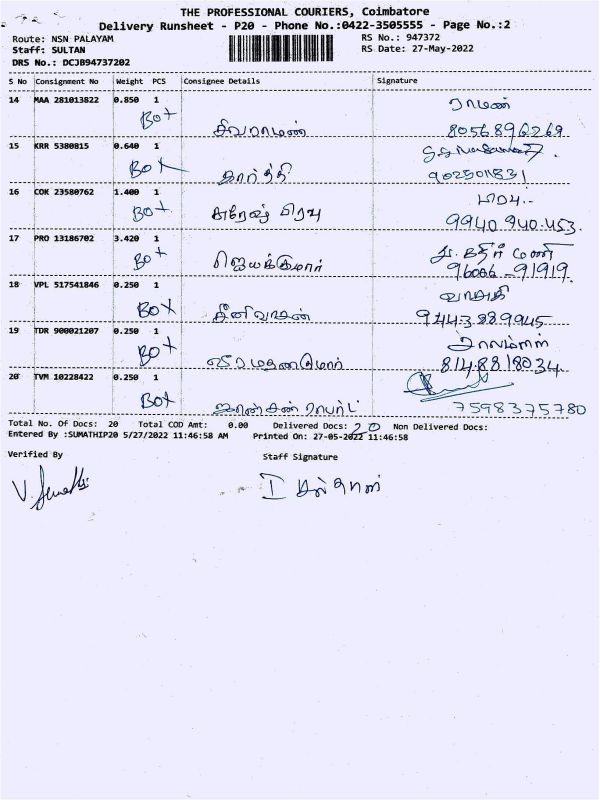 THE PROFESSIONAL COURIERS, Coimbatore
Delivery Runsheet - P20 - Phone No.:0422-3505555 - Page No.:2
Route: NSN PALAYAM RS No.: 947372
Staff: SULTAN RS Date: 27-May-2022
DRS No.: DCJB94737202
S No Consignment No Weight PCS Consignee Details Signature
14 MAA 281013822 0.850 1 ராமண்
Box சிவராமண் 8056896269
15 KRR 5380815 0.640 1
Box கார்த்தி 9025011831
16 COK 23580762 1.400 1 பிரபு
Box சுரேஷ் பிரபு 9940.940.453
17 PRO 13186702 3.420 1 கதிர் மணி
Box ஜெயக்குமார் 96006-91919
18 VPL 517541846 0.250 1 வாசுகி
Box சீனிவாசன் 9443889945
19 TDR 900021207 0.250 1
Box வீரமதனகுமார் 8148818034
20 TVM 10228422 0.250 1
Box ஜான்சன் ராபர்ட் 7598375780
Total No. Of Docs: 20 Total COD Amt: 0.00 Delivered Docs: 20 Non Delivered Docs:
Entered By :SUMATHIP20 5/27/2022 11:46:58 AM Printed On: 27-05-2022 11:46:58
Verified By Staff Signature